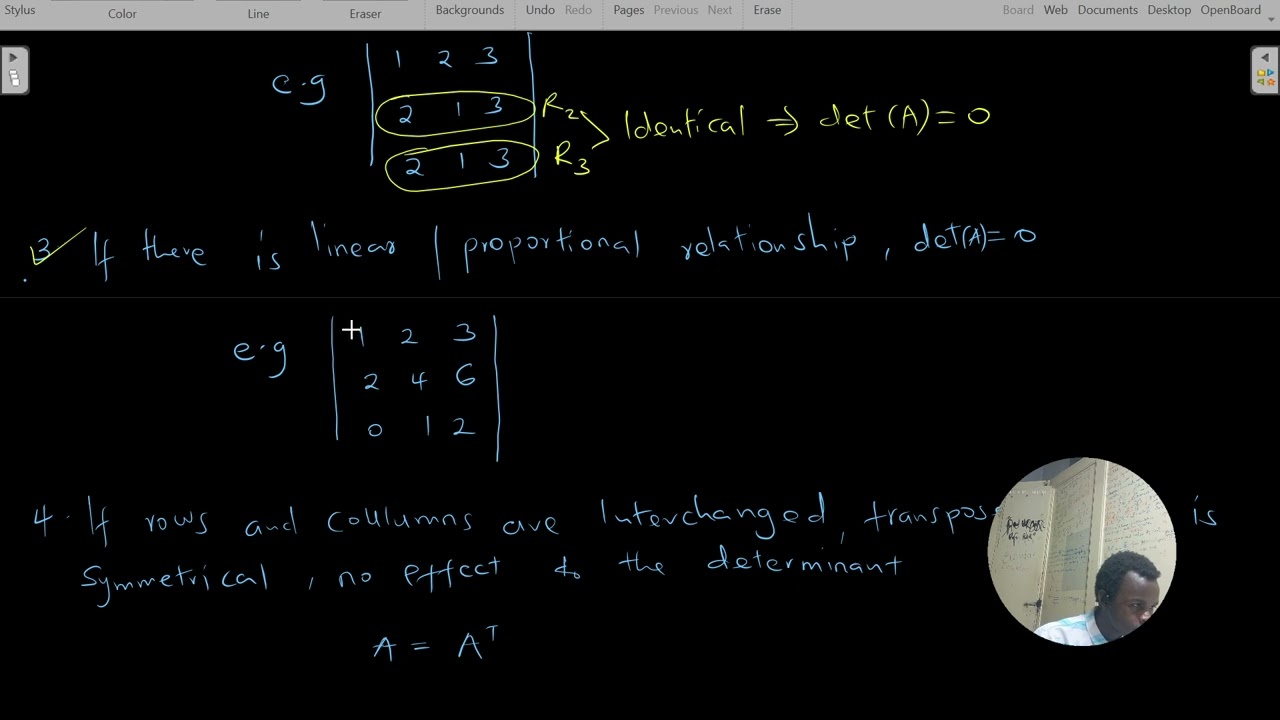 Stylus Color Line Eraser Backgrounds Undo Redo Pages Previous Next Erase Board Web Documents Desktop OpenBoard
e.g
1 2 3
2 1 3 R2
2 1 3 R3
Identical ⇒ det(A)=0
3. If there is linear / proportional relationship, det(A)=0
e.g
1 2 3
2 4 6
0 1 2
4. If rows and coulumns are Interchanged, transpos is
symmetrical, no effect to the determinant
A = Aᵀ